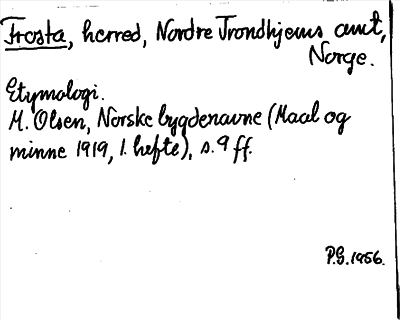 Frosta, herred, Nordre Trondhjems amt,
Norge.
Etymologi.
M. Olsen, Norske bygdenavne (Maal og
minne 1919, 1. hefte), s. 9 ff.
P.G. 1956.